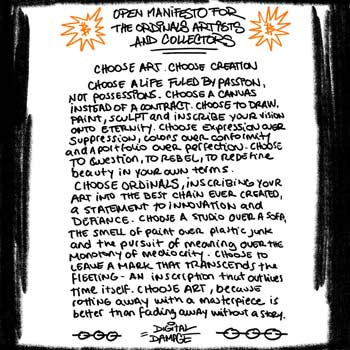 OPEN MANIFESTO FOR
THE ORDINALS ARTISTS
AND COLLECTORS
CHOOSE ART. CHOOSE CREATION
CHOOSE A LIFE FULED BY PASSION,
NOT POSSESSIONS. CHOOSE A CANVAS
INSTEAD OF A CONTRACT. CHOOSE TO DRAW,
PAINT, SCULPT and INSCRIBE YOUR VISION
ONTO ETERNITY. CHOOSE EXPRESSION OVER
SUPPRESSION, COLORS OVER CONFORMITY
and A PORTFOLIO OVER PERFECTION. CHOOSE
TO QUESTION, TO REBEL, TO REDEFINE
beauty IN YOUR OWN TERMS.
CHOOSE ORDINALS, INSCRIBING YOUR
ART INTO THE BEST CHAIN EVER CREATED,
A STATEMENT TO INNOVATION and
DEFIANCE. CHOOSE A STUDIO OVER A SOFA,
THE SMELL OF PAINT OVER PLASTIC JUNK
and THE PURSUIT OF MEANING OVER THE
MONOTONY OF MEDIOCRITY. CHOOSE TO
LEAVE A MARK THAT TRANSCENDS THE
FLEETING - AN INSCRIPTION THAT OUTLIVES
TIME ITSELF. CHOOSE ART, because
rotting away with a masterpiece is
better than fading away without a story.
DIGITAL
DAMAGE